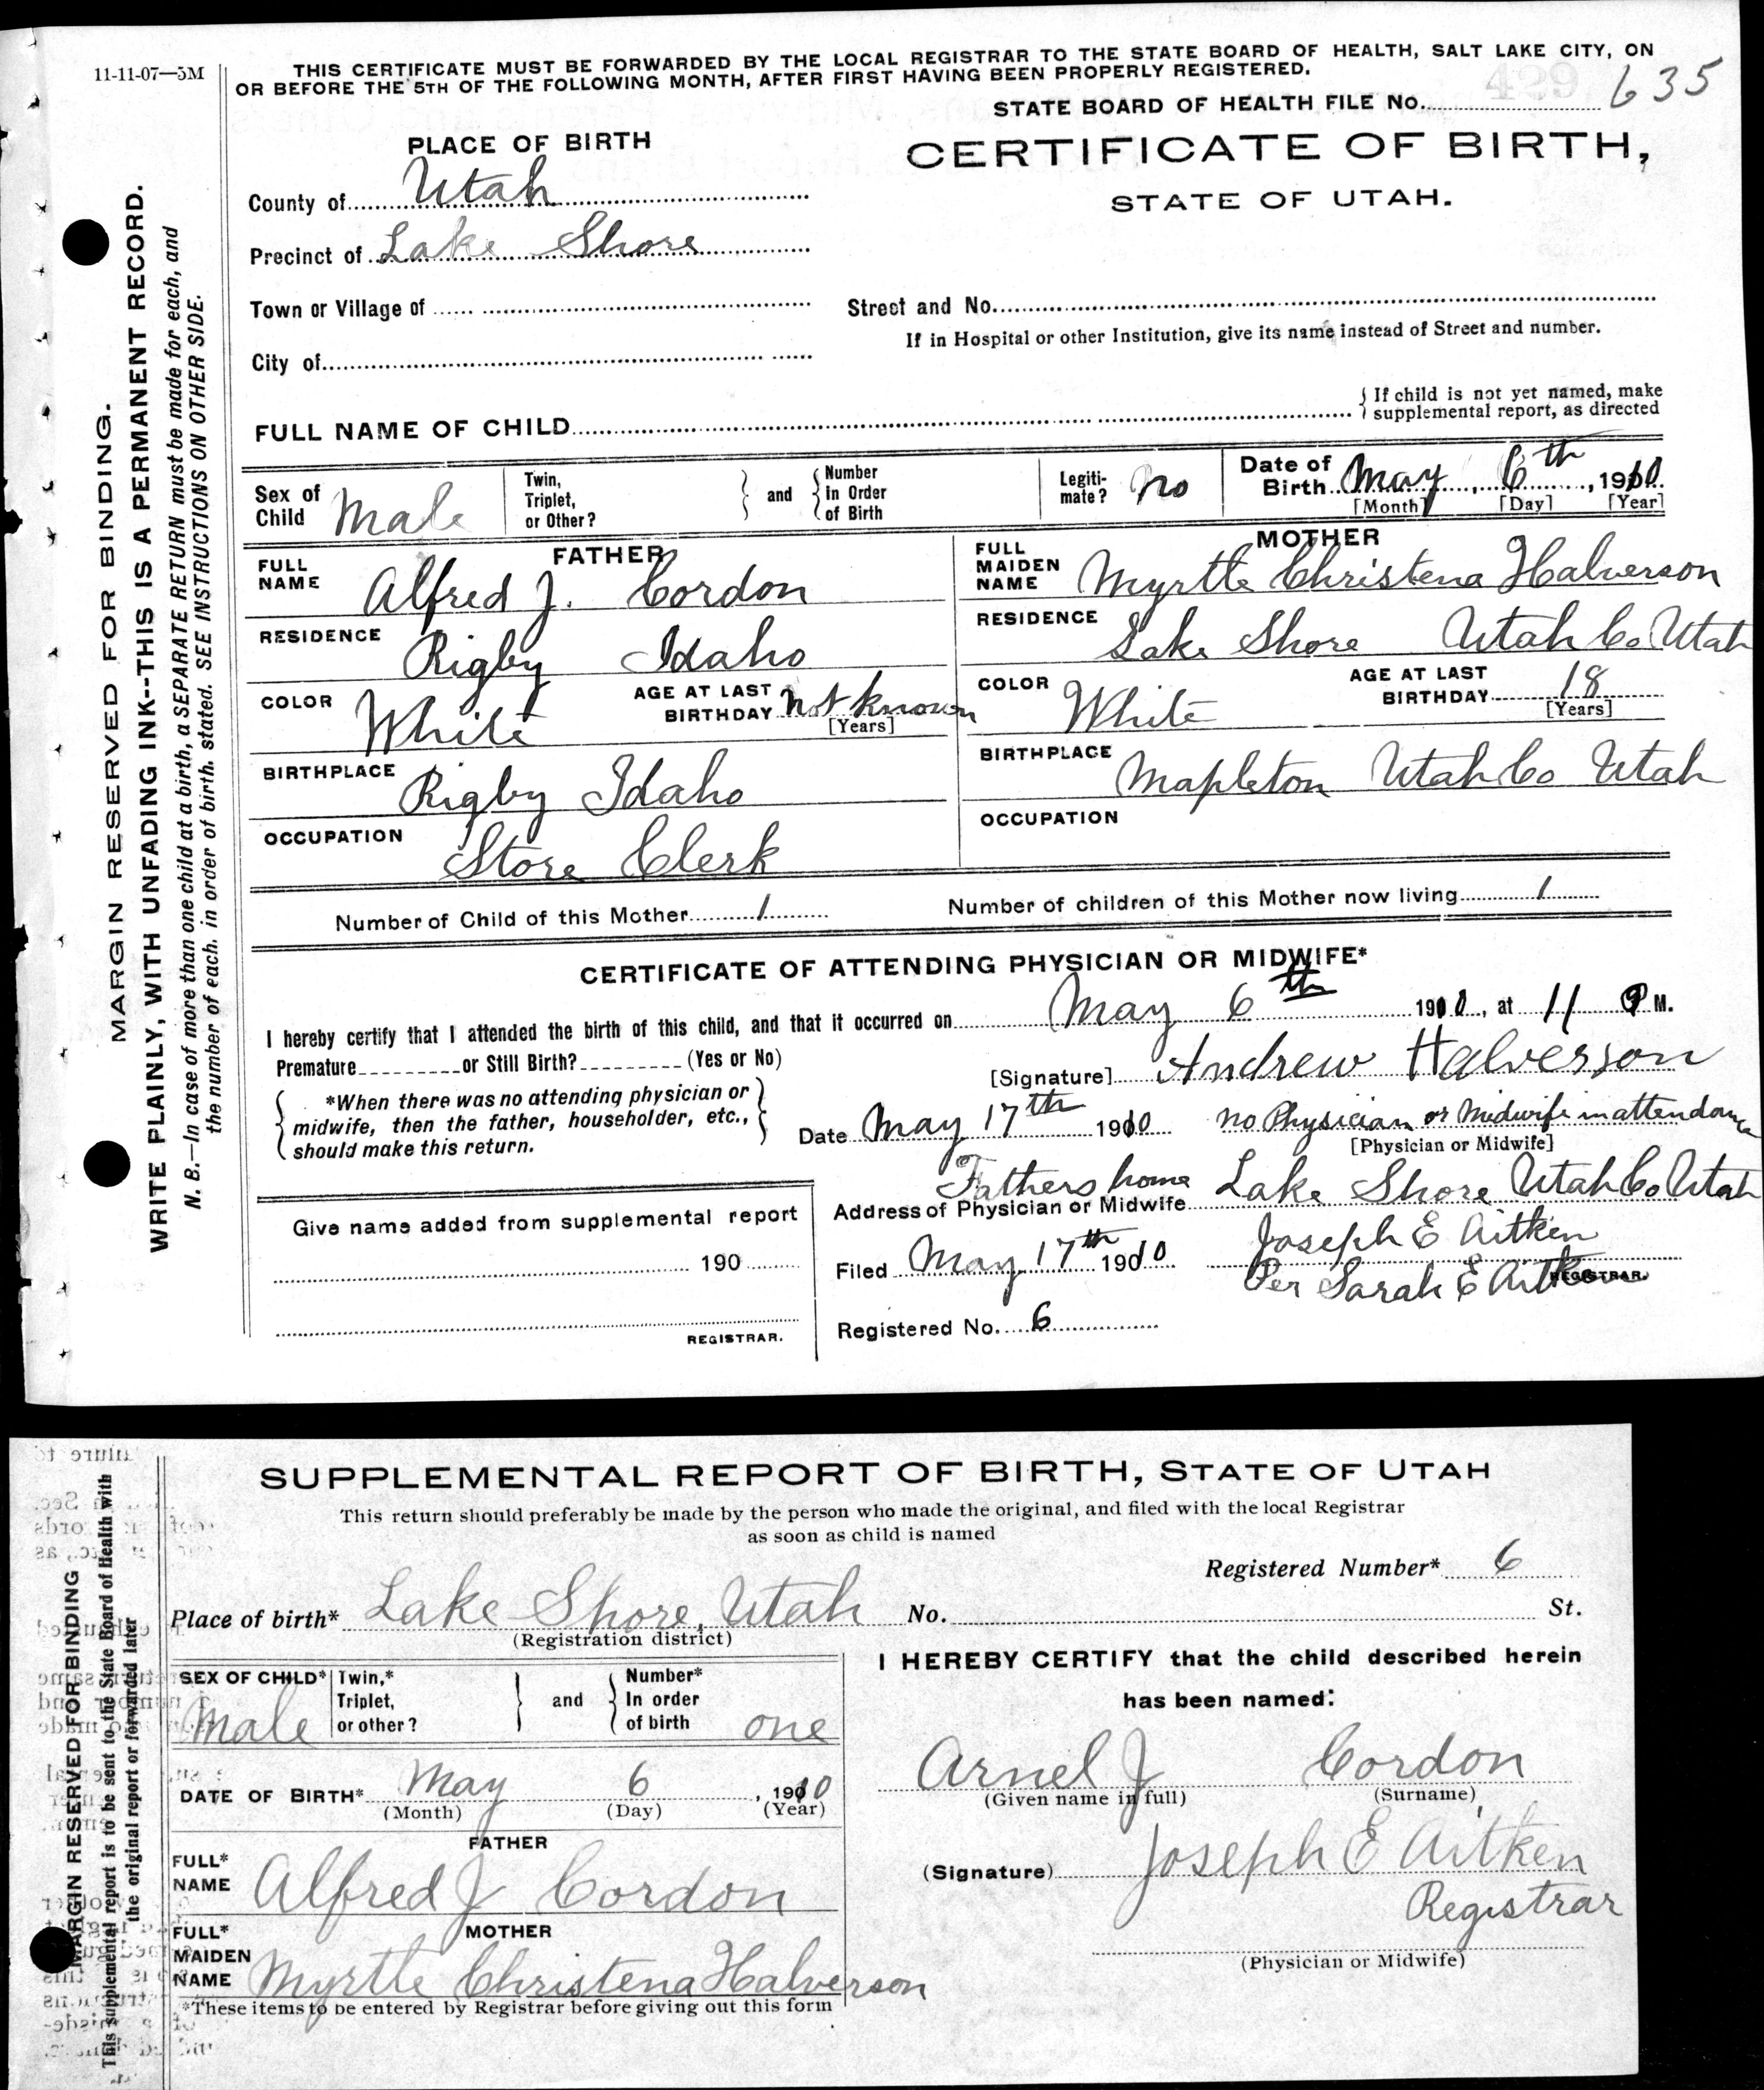 11-11-07—5M
THIS CERTIFICATE MUST BE FORWARDED BY THE LOCAL REGISTRAR TO THE STATE BOARD OF HEALTH, SALT LAKE CITY, ON
OR BEFORE THE 5TH OF THE FOLLOWING MONTH, AFTER FIRST HAVING BEEN PROPERLY REGISTERED.
STATE BOARD OF HEALTH FILE No. 635
429
PLACE OF BIRTH
CERTIFICATE OF BIRTH,
STATE OF UTAH.
County of Utah
Precinct of Lake Shore
Town or Village of
Street and No.
If in Hospital or other Institution, give its name instead of Street and number.
City of
FULL NAME OF CHILD
{ If child is not yet named, make
supplemental report, as directed
Sex of Child Male
Twin, Triplet, or Other?
and
Number In Order of Birth
Legiti-mate? No
Date of Birth May 6th, 1910
[Month] [Day] [Year]
FATHER
FULL NAME Alfred J. Cordon
RESIDENCE Rigby Idaho
COLOR White
AGE AT LAST BIRTHDAY not known
[Years]
BIRTHPLACE Rigby Idaho
OCCUPATION Store Clerk
MOTHER
FULL MAIDEN NAME Myrtle Christena Halverson
RESIDENCE Lake Shore Utah Co Utah
COLOR White
AGE AT LAST BIRTHDAY 18
[Years]
BIRTHPLACE Mapleton Utah Co Utah
OCCUPATION
Number of Child of this Mother 1
Number of children of this Mother now living 1
CERTIFICATE OF ATTENDING PHYSICIAN OR MIDWIFE*
I hereby certify that I attended the birth of this child, and that it occurred on May 6th 1910, at 11 P M.
Premature or Still Birth? (Yes or No)
[Signature] Andrew Halverson
*When there was no attending physician or
midwife, then the father, householder, etc.,
should make this return.
Date May 17th 1910
no Physician or Midwife in attendance
[Physician or Midwife]
Fathers home
Address of Physician or Midwife Lake Shore Utah Co Utah
Give name added from supplemental report
190
REGISTRAR.
Filed May 17th 1910
Joseph E Aitken
Per Sarah E Aitken
REGISTRAR.
Registered No. 6
MARGIN RESERVED FOR BINDING.
WRITE PLAINLY, WITH UNFADING INK--THIS IS A PERMANENT RECORD.
N. B.—In case of more than one child at a birth, a SEPARATE RETURN must be made for each, and
the number of each, in order of birth, stated. SEE INSTRUCTIONS ON OTHER SIDE.
SUPPLEMENTAL REPORT OF BIRTH, STATE OF UTAH
This return should preferably be made by the person who made the original, and filed with the local Registrar
as soon as child is named
Registered Number* 6
Place of birth* Lake Shore, Utah No. St.
(Registration district)
SEX OF CHILD* Male
Twin,* Triplet, or other?
and
Number* In order of birth one
DATE OF BIRTH* May 6, 1910
(Month) (Day) (Year)
FATHER
FULL* NAME Alfred J Cordon
MOTHER
FULL* MAIDEN NAME Myrtle Christena Halverson
*These items to be entered by Registrar before giving out this form
I HEREBY CERTIFY that the child described herein
has been named:
Arnel J Cordon
(Given name in full) (Surname)
(Signature) Joseph E Aitken
Registrar
(Physician or Midwife)
MARGIN RESERVED FOR BINDING
This supplemental report is to be sent to the State Board of Health with
the original report or forwarded later